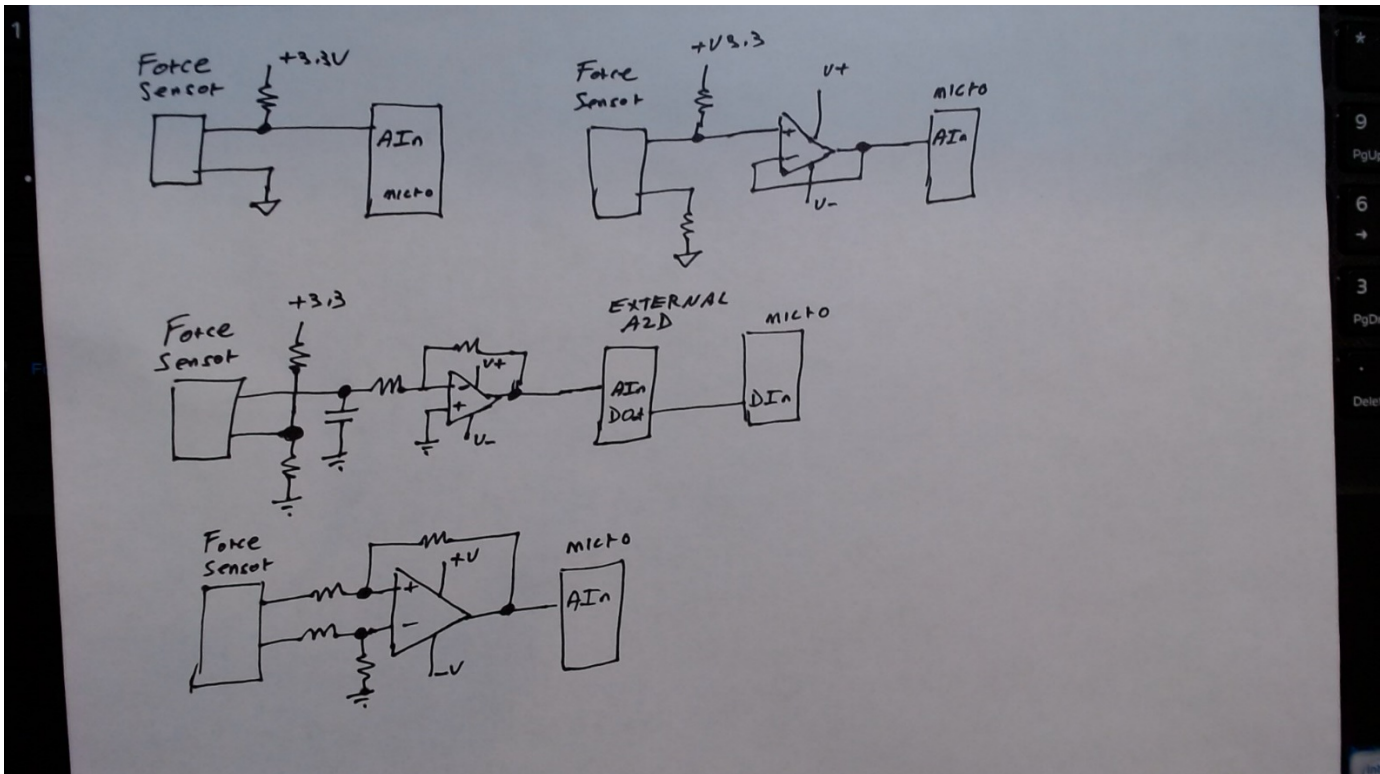 1
Force
Sensor
+3.3V
AIn
micro
Force
Sensor
+V3.3
+
-
V+
V-
micro
AIn
Force
Sensor
+3.3
-
+
V+
V-
EXTERNAL
A2D
AIn
DOut
micro
DIn
Force
Sensor
+
-
+V
-V
micro
AIn
*
9
PgUp
6
→
3
PgDn
.
Delete